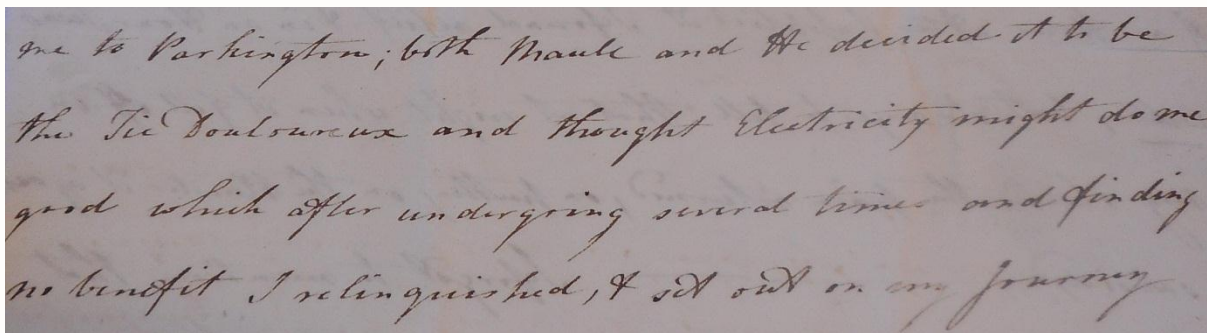 me to Parkington; both Maule and He decided it to be
the Tic Douloureux and thought Electricity might do me
good which after undergoing several times and finding
no benefit I relinquished, & set out on my Journey